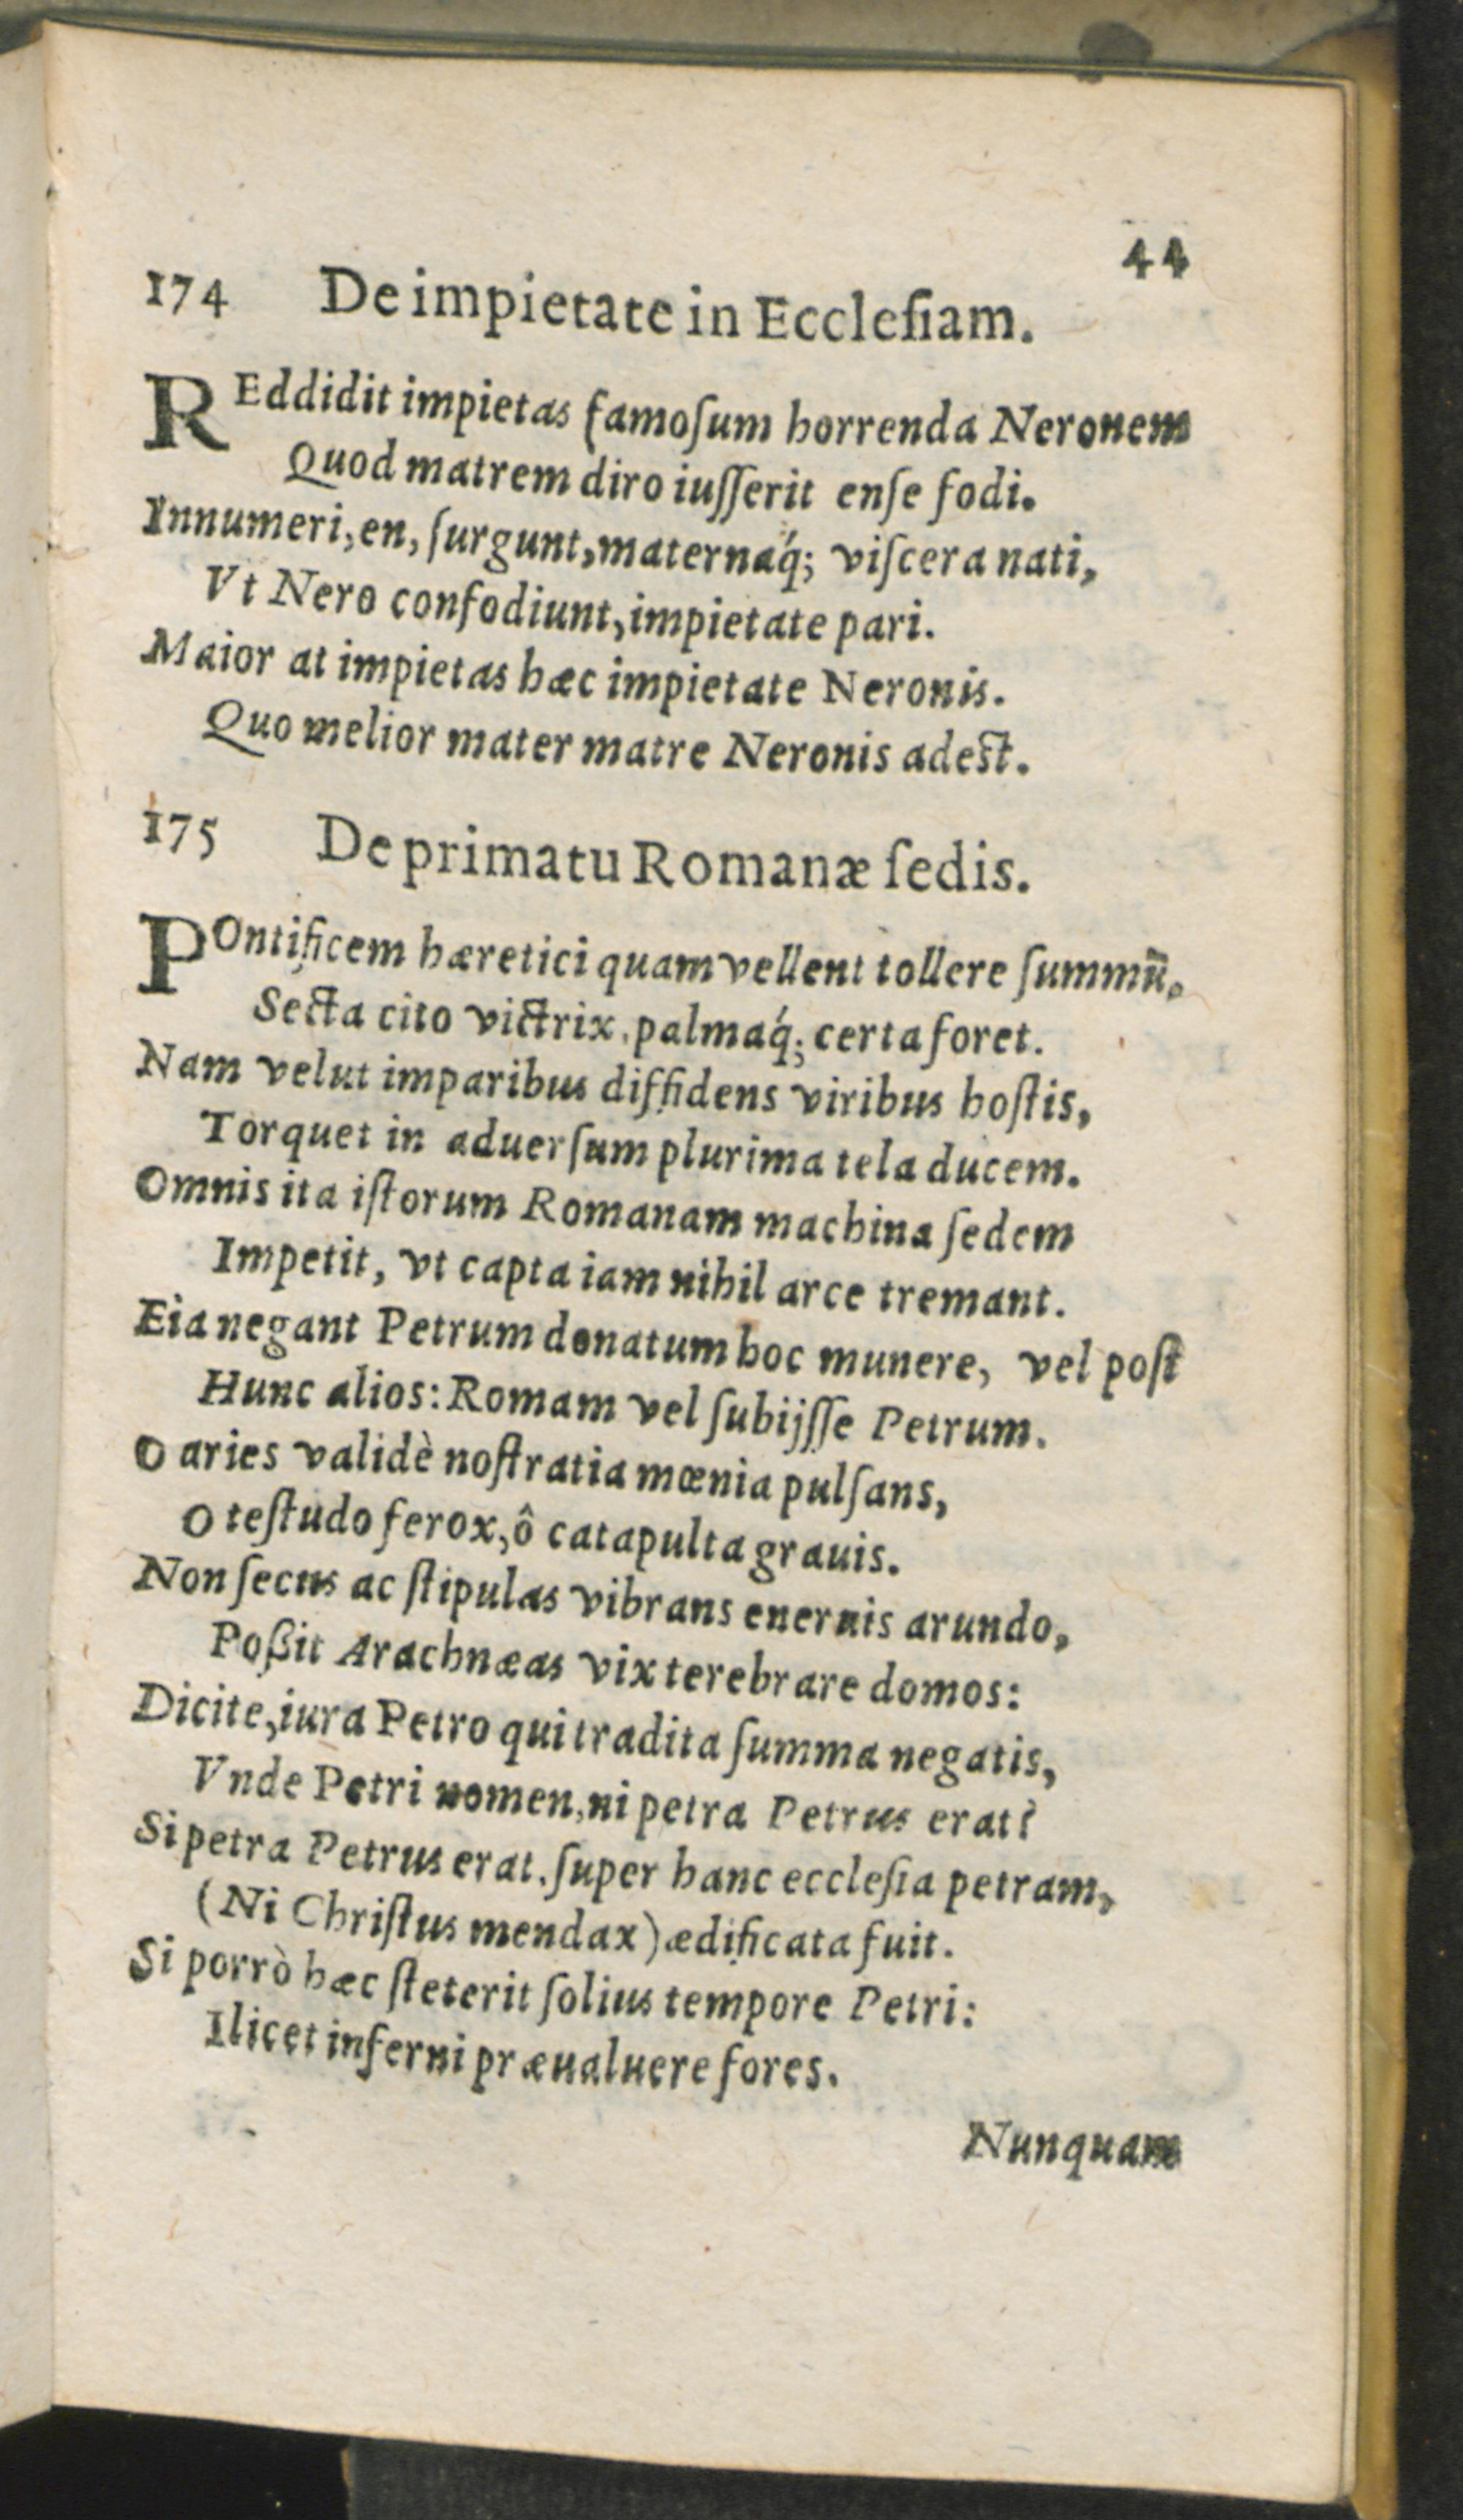 44
174 De impietate in Eccleſiam.
REddidit impietas famoſum horrenda Neronem
Quod matrem diro iuſſerit enſe fodi.
Innumeri, en, ſurgunt, maternaq́; viſcera nati,
Vt Nero confodiunt, impietate pari.
Maior at impietas hæc impietate Neronis.
Quo melior mater matre Neronis adeſt.
175 De primatu Romanæ ſedis.
POntificem hæretici quam vellent tollere ſummũ.
Secta cito victrix, palmaq́; certa foret.
Nam velut imparibus diffidens viribus hoſtis,
Torquet in aduerſum plurima tela ducem.
Omnis ita iſtorum Romanam machina ſedem
Impetit, vt capta iam nihil arce tremant.
Eia negant Petrum donatum hoc munere, vel poſt
Hunc alios: Romam vel ſubijſſe Petrum.
O aries validè noſtratia mœnia pulſans,
O teſtudo ferox, ô catapulta grauis.
Non ſecus ac ſtipulas vibrans eneruis arundo,
Poßit Arachnæas vix terebrare domos:
Dicite, iura Petro qui tradita ſumma negatis,
Vnde Petri nomen, ni petra Petrus erat?
Si petra Petrus erat, ſuper hanc eccleſia petram,
(Ni Chriſtus mendax) ædificata fuit.
Si porrò hæc ſteterit ſolius tempore Petri:
Ilicet inferni præualuere fores.
Nunquam